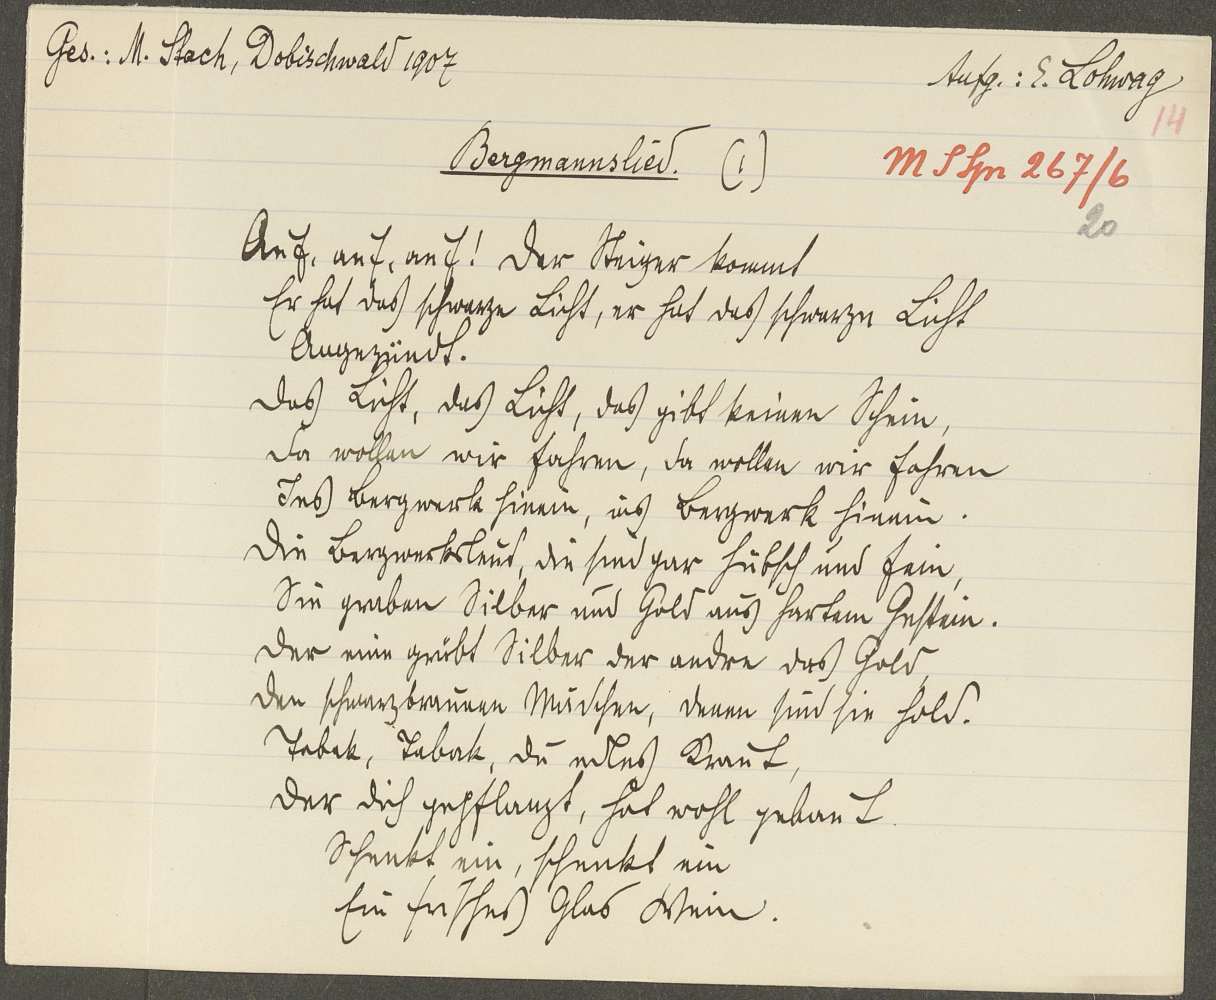 Ges.: M. Stach, Dobischwald 1907
Aufg.: E. Lohwag
14
Bergmannslied. (1)
M S Spr 267/6
20
Auf, auf, auf! Der Steiger kommt
Er hat das schwarze Licht, er hat das schwarze Licht
Angezündt.
Das Licht, das Licht, das gibt keinen Schein,
Da wollen wir fahren, da wollen wir fahren
Ins Bergwerk hinein, ins Bergwerk hinein.
Die Bergwerksleut, die sind gar hübsch und fein,
Sie graben Silber und Gold aus hartem Gestein.
Der eine gräbt Silber der andre das Gold,
Den schwarzbraunen Mädchen, denen sind sie hold.
Tabak, Tabak, du edles Kraut,
Der dich gepflanzt, hat wohl gebaut.
Schenkt ein, schenkt ein
Ein frisches Glas Wein.